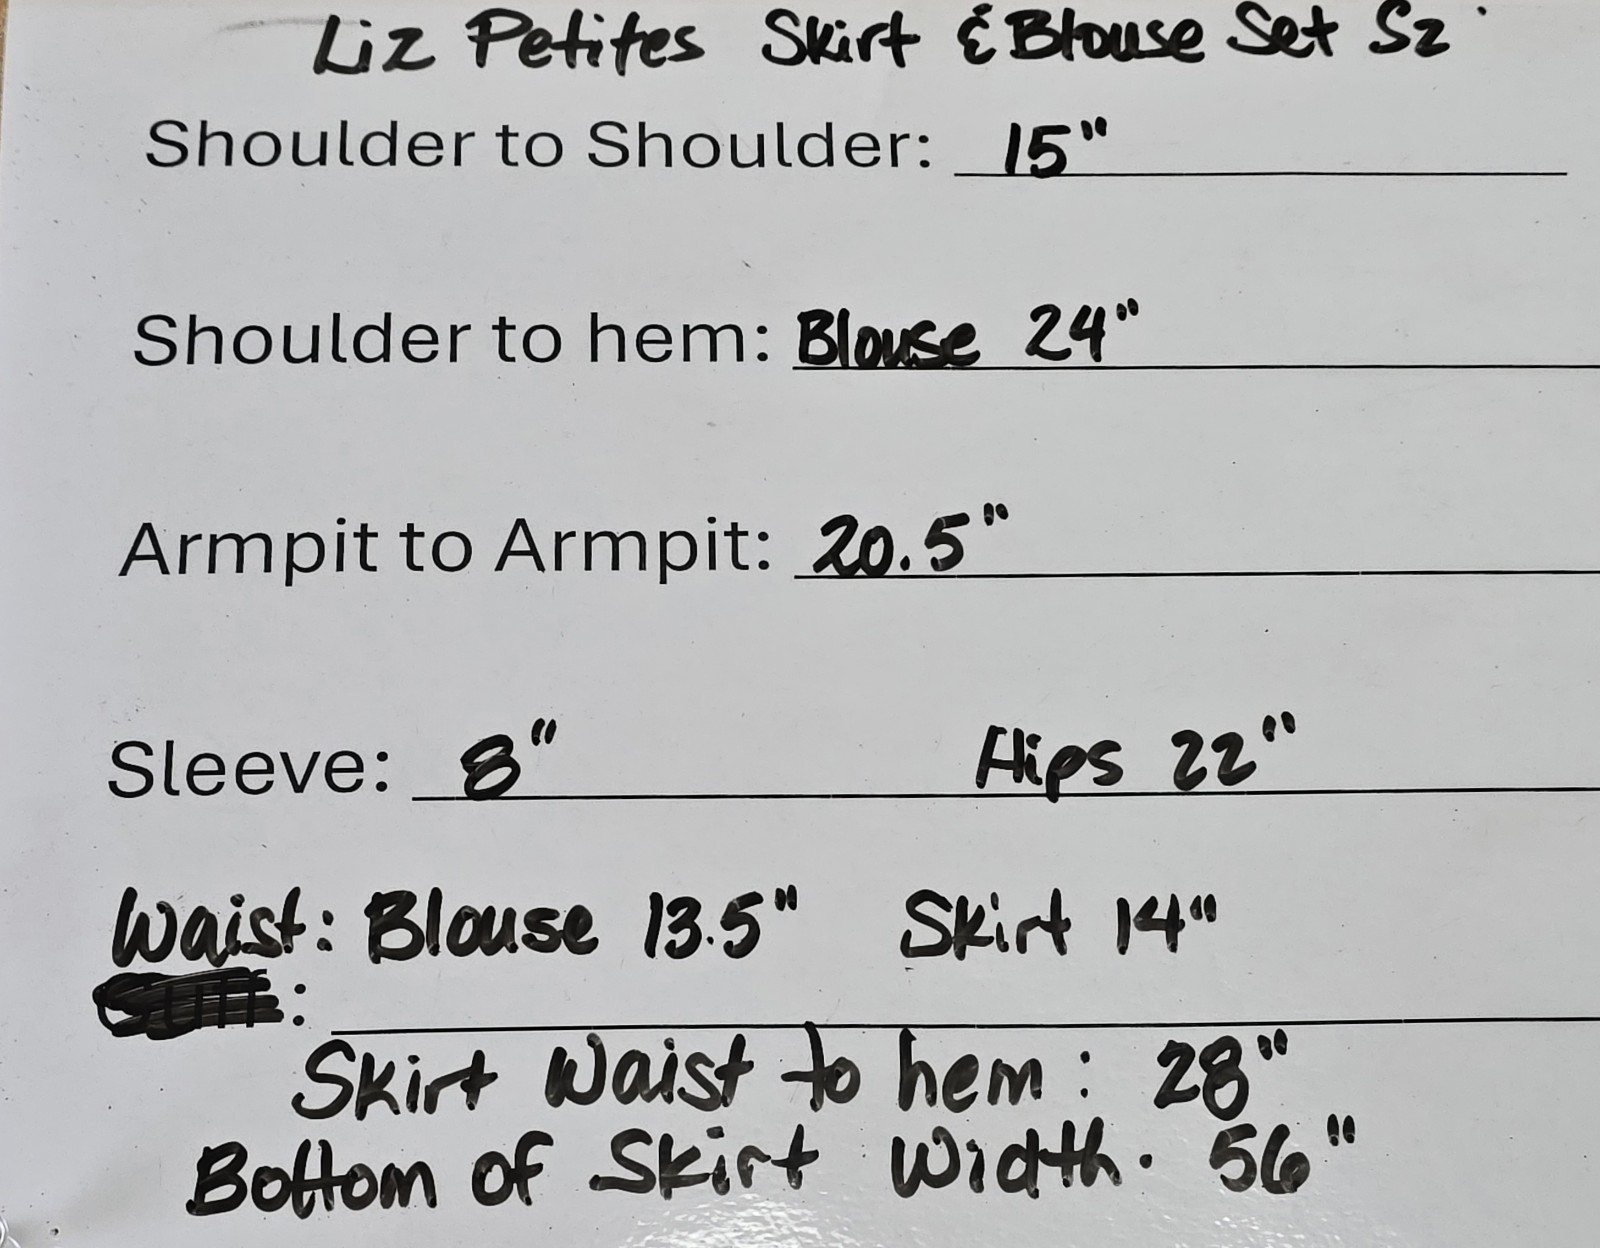 Liz Petites Skirt & Blouse Set Sz
Shoulder to Shoulder: 15"
Shoulder to hem: Blouse 24"
Armpit to Armpit: 20.5"
Sleeve: 8" Hips 22"
Waist: Blouse 13.5" Skirt 14"
:
Skirt Waist to hem: 28"
Bottom of Skirt Width. 56"